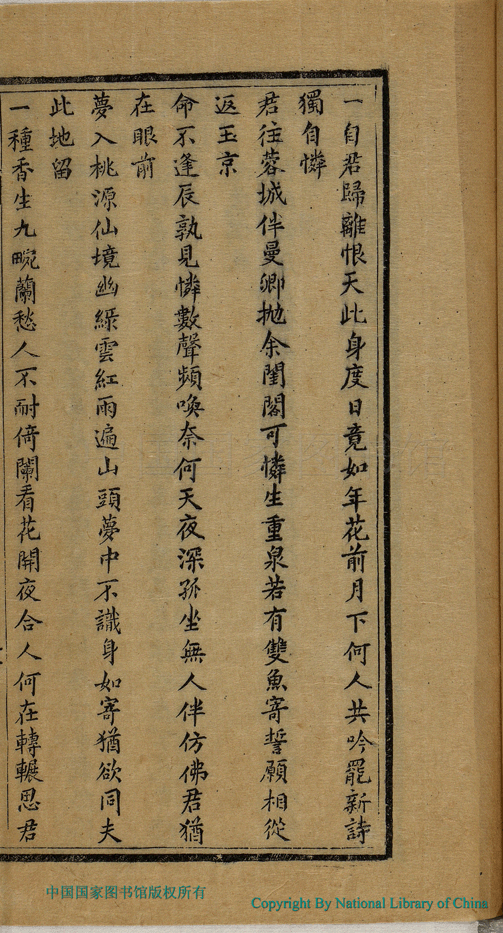 一自君歸離恨天此身度日竟如年花前月下何人共吟罷新詩
獨自憐
君往蓉城伴曼卿拋余閨閣可憐生重泉若有雙魚寄誓願相從
返玉京
命不逢辰孰見憐數聲頻喚奈何天夜深孤坐無人伴仿佛君猶
在眼前
夢入桃源仙境幽綠雲紅雨遍山頭夢中不識身如寄猶欲同夫
此地留
一種香生九畹蘭愁人不耐倚闌看花開夜合人何在轉輾思君
中国国家图书馆版权所有
Copyright By National Library of China